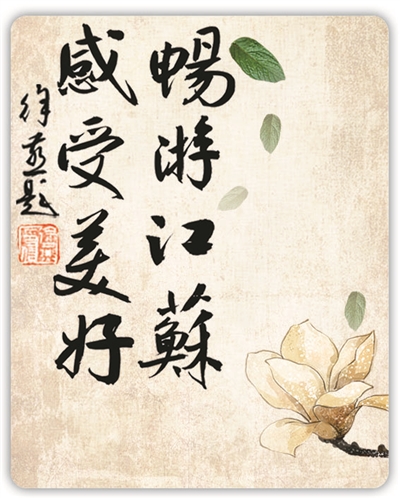 暢游江蘇
感受美好
徐燕題